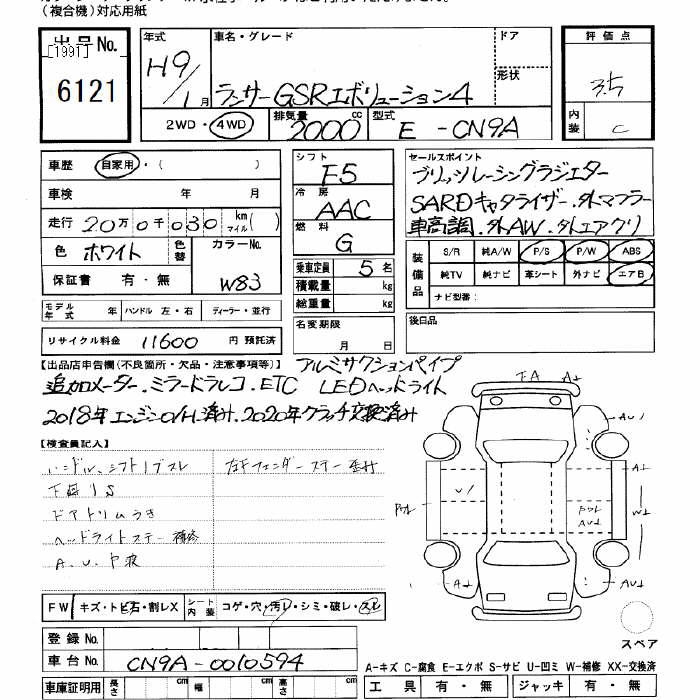 (複合機)対応用紙
出品No.
[1991]
6121
年式
H9/1月
車名・グレード
ランサーGSRエボリューション4
ドア
形状
評価点
3.5
内装
C
2WD・4WD
排気量
2000cc
型式
E-CN9A
車歴
自家用・( )
車検 年 月
走行 20万0千030 km マイル( )
色 ホワイト
色替
カラーNo.
W83
保証書 有・無
モデル年式 年
ハンドル 左・右
ディーラー・並行
リサイクル料金 11600 円 預託済
シフト
F5
冷房
AAC
燃料
G
乗車定員 5 名
積載量 kg
総重量 kg
名変期限
月 日
セールスポイント
ブリッツレーシングラジエター
SARDキャタライザー.外マフラー
車高調.外AW.外エアクリ
装備品
S/R 純A/W P/S P/W ABS
純TV 純ナビ 革シート 外ナビ エアB
ナビ型番:
後日品
【出品店申告欄(不良箇所・欠品・注意事項等)】
アルミサクションパイプ
追加メーター.ミラードラレコ.ETC LEDヘッドライト
2018年エンジンO/H済み.2020年クラッチ交換済み
【検査員記入】
ハンドル、シフトノブスレ
下廻りS
ドアトリムうき
ヘッドライトステー補修
A.U.P波
左Fフェンダーステー歪み
下A
A1
AU1
A1
W1
AU1
A1
AU1
A1
U1
FW
キズ・トビ石・割レX
シート内装
コゲ・穴・汚レ・シミ・破レ・スレ
登録No.
車台No.
CN9A-0010594
車庫証明用
長さ cm
幅 cm
高さ cm
スペア
A-キズ C-腐食 E-エクボ S-サビ U-凹ミ W-補修 XX-交換済
工具 有・無
ジャッキ 有・無